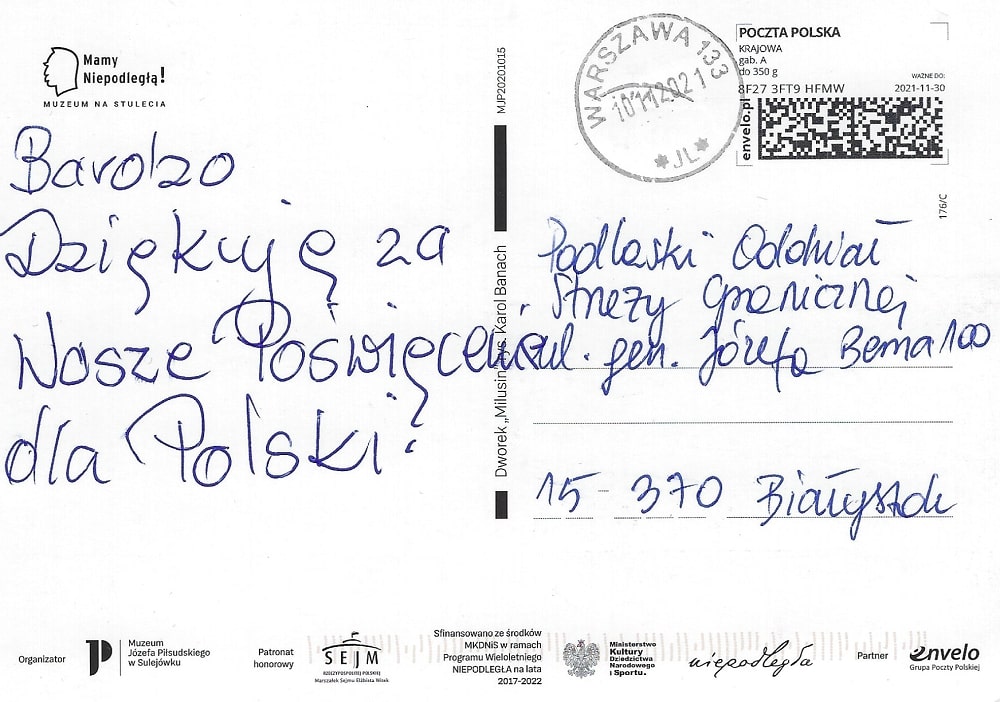 Mamy
Niepodległą!
MUZEUM NA STULECIA
Bardzo
Dziękuję za
Wasze Poświęcenie
dla Polski!
MJP20201015
Dworek „Milusin”, rys. Karol Banach
WARSZAWA 133
10.11.2021
*JL*
POCZTA POLSKA
KRAJOWA
gab. A
do 350 g
8F27 3FT9 HFMW
WAŻNE DO:
2021-11-30
envelo.pl
176/C
Podlaski Oddział
Straży Granicznej
ul. gen. Józefa Bema 100
15-370 Białystok
Organizator
Muzeum
Józefa Piłsudskiego
w Sulejówku
Patronat
honorowy
SEJM
RZECZYPOSPOLITEJ POLSKIEJ
Marszałek Sejmu Elżbieta Witek
Sfinansowano ze środków
MKDNiS w ramach
Programu Wieloletniego
NIEPODLEGŁA na lata
2017-2022
Ministerstwo
Kultury
Dziedzictwa
Narodowego
i Sportu.
niepodległa
Partner
envelo
Grupa Poczty Polskiej